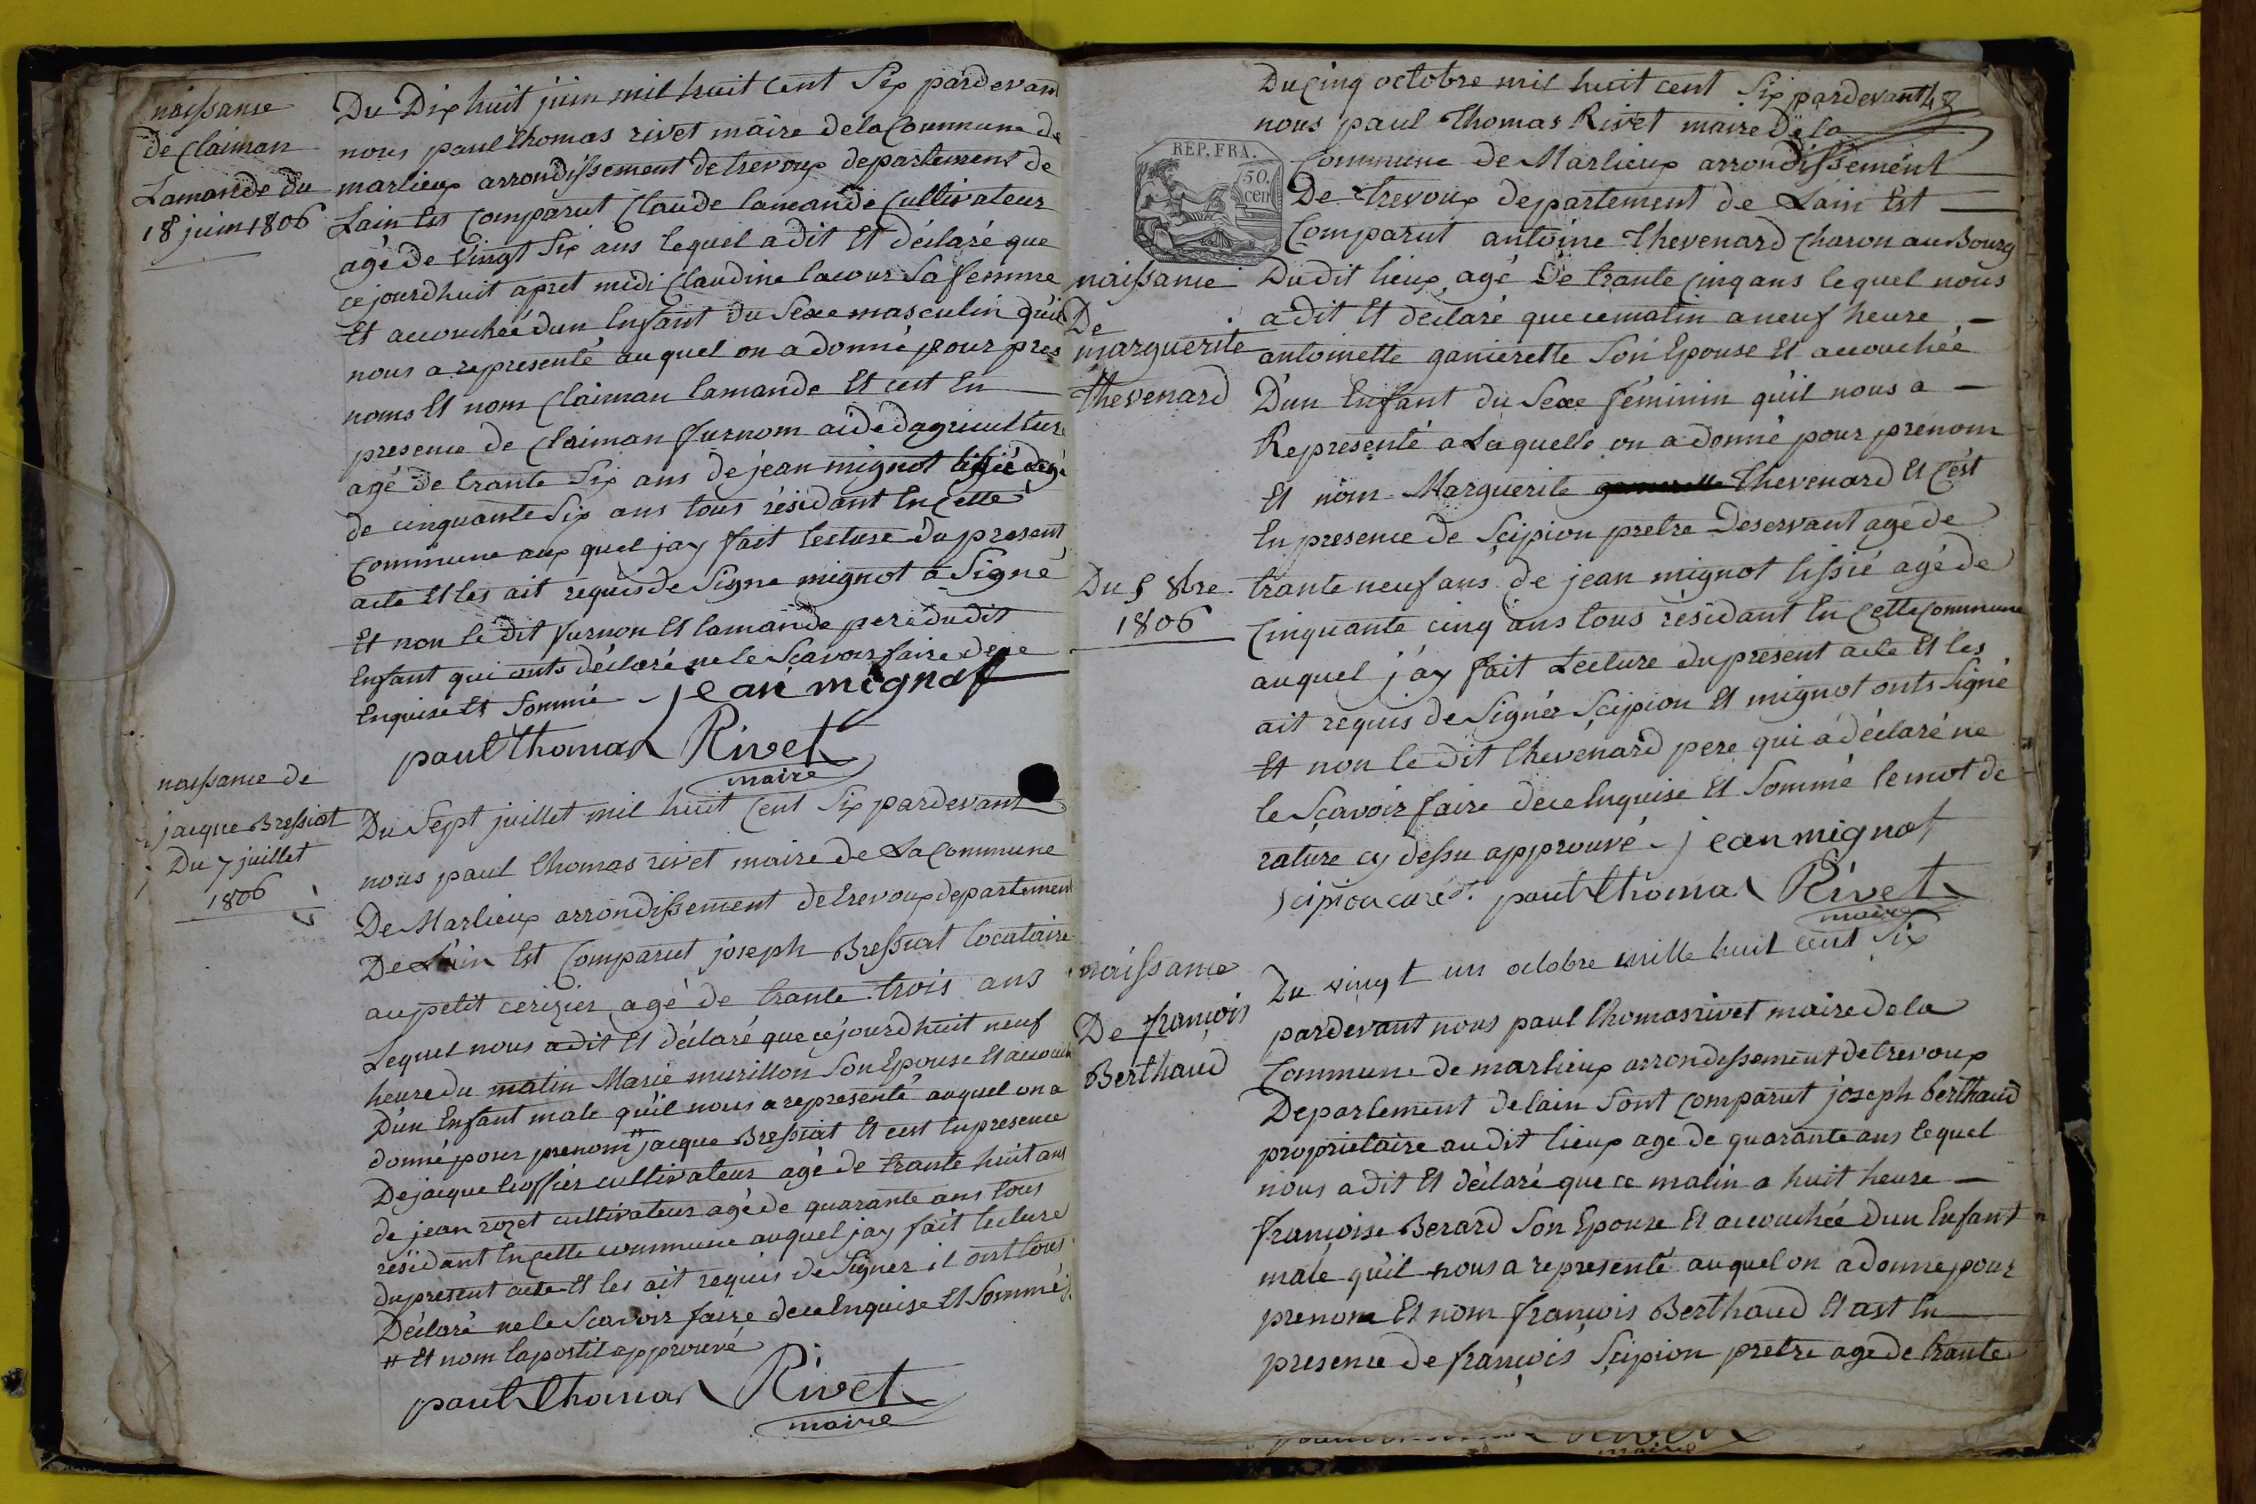 naissance
de Claiman
Lamande du
18 juin 1806
Du Dix huit juin mil huit cent Six pardevant
nous paul thomas rivet maire de la Commune de
marlieux arrondissement de trevoux departement de
Lain Est Comparut Claude lamande Cultivateur
agé de Vingt Six ans lequel a dit Et déclaré que
ce jourdhuit apret midi Claudine lacour Sa femme
Et accouchée dun Enfant du Sexe masculin quil
nous a representé auquel on a donné pour pres
noms Et nom Claiman lamande Et cest En
presence de Claiman furnom aide dagriculture
agé de trante Six ans de jean mignot agé
de cinquante Six ans tous résidant En Cette
Commune aux quel jay fait lecture du present
acte Et les ait requis de Signe mignot a Signé
Et non le dit furnon Et lamande pere du dit
Enfant qui onts déclaré ne le Scavoir faire dece
Enquise Et Sommé jean mignot
paul thomas Rivet
maire
naissance de
jacque Bressiat
Du 7 juillet
1806
Du Sept juillet mil huit Cent Six pardevant
nous paul thomas rivet maire de La Commune
De Marlieux arrondissement de trevoux departement
De Lain Est Comparut joseph Bressiat locataire
au petit cerizier agé de trante trois ans
Lequel nous a dit Et déclaré que cejourdhuit neuf
heure du matin Marie murillon Son Epouse Et accouchée
D'un Enfant male qu'il nous a representé auquel on a
donné pour prenom # jacque Bressiat Et cest En presence
De jacque cultivateur agé de trante huit ans
de jean rozet cultivateur agé de quarante ans tous
résidant En Cette commune auquel jay fait lecture
du present acte Et les ait requis de Signer il ont tous
Déclaré ne le Scavoir faire dece Enquise Et Sommé
# Et nom lapostil approuvé
paul thomas Rivet
maire
48
Du Cinq octobre mil huit cent Six pardevant
nous paul Thomas Rivet maire De la
REP. FRA.
50 cen
Commune de Marlieux arrondissement
De trevoux departement de Lain Est
Comparut antoine Thevenard Charon au Bourg
naissance
De
marguerite
thevenard
Du 5 8bre
1806
Dudit lieux, agé De trante Cinq ans lequel nous
a dit Et déclaré que ce matin a neuf heure
antoinette ganierette Son Epouse Et accouchée
D'un Enfant du Sexe féminin qu'il nous a
Representé a Laquelle on a donné pour prenom
Et nom Marguerite Thevenard Et C'est
En presence de Scipion pretre Deservant agé de
trante neuf ans de jean mignot tissié agé de
Cinquante cinq ans tous résidant En Cette Commune
auquel j'ay fait Lecture du present acte Et les
ait requis de Signér Scipion Et mignot onts Signé
Et non le dit thevenard pere qui a déclaré ne
le Scavoir faire dece Enquise Et Sommé le mot de
rature cy dessu approuvé jean mignot
scipion curé paul thomas Rivet
maire
naissance
De françois
Berthaud
Du vingt un octobre mille huit cent Six
pardevant nous paul thomas rivet maire de la
Commune de marlieux arrondissement de trevoux
Departement de lain Sont Comparut joseph berthaud
proprietaire audit lieux age de quarante ans lequel
nous a dit Et déclaré que ce matin a huit heure
françoise Berard Son Epouse Et accouchée dun Enfant
male qu'il nous a representé auquel on a donné pour
prenom Et nom françois Berthaud Et ast En
presence de françois Scipion pretre age de trante